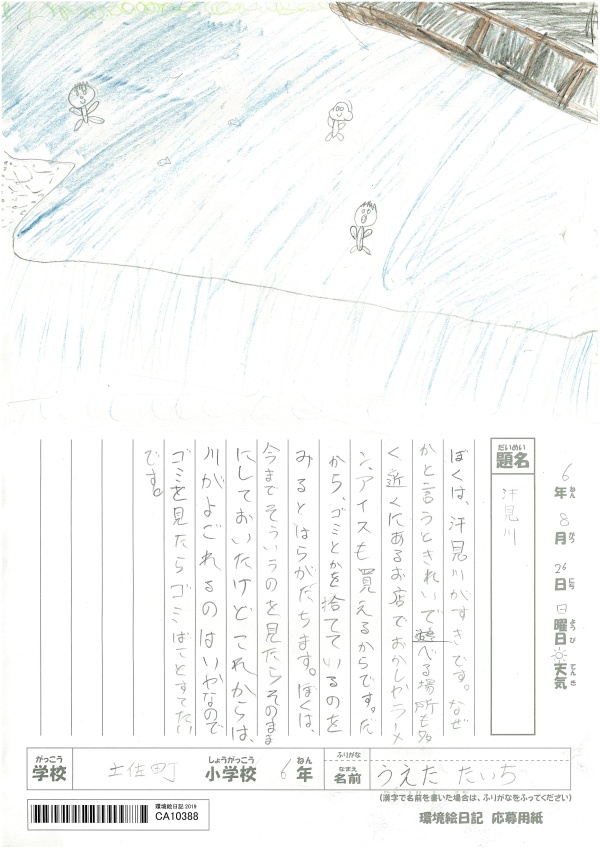 6年 8月 26日 日曜日 天気
ねん がつ にち ようび てんき
だいめい
題名
汗見川
ぼくは、汗見川がすきです。なぜ
かと言うときれいで遊べる場所も多
く近くにあるお店でおかしやラーメ
ン、アイスも買えるからです。だ
から、ゴミとかを捨てているのを
みるとはらがたちます。ぼくは、
今までそういうのを見たらそのまま
にしておいたけどこれからは、
川がよごれるのはいやなので
ゴミを見たらゴミばことすてたい
です。
がっこう しょうがっこう ねん ふりがな
学校 土佐町 小学校 6年
なまえ
名前 うえた たいち
(漢字で名前を書いた場合は、ふりがなをふってください)
環境絵日記 2018
CA10388
環境絵日記 応募用紙